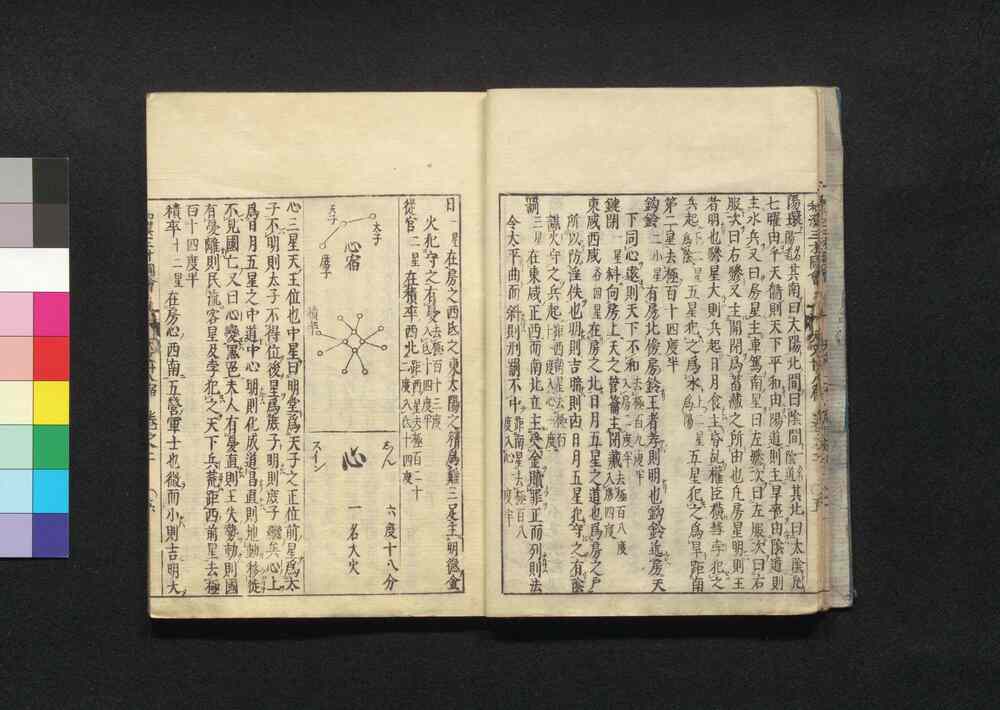 陽環一名其南曰太陽北間曰陰間一名陰道其北曰太陰凡
七曜由乎天衢則天下平和由陽道則主旱喪由陰道則
主水兵又曰房星主車駕南星曰左驂次曰左服次曰右
服次曰右驂又主開閉爲蓄藏之所由也凡房星明則王
者明也驂星大則兵起日月食主昏乱權臣横彗孛犯之
兵起
第二星去極百十四度半
鈎鈐二小星有房北傍房鈐王者孝則明也鈎鈐近房天
下同心遠則天下不和去極百九度半入房一度半
鍵閉一星斜向房上天之管籥主閉藏去極百八度入房四度
東咸西咸各四星在房之北日月五星之道也爲房之戸
所以防淫佚也明則吉暗則凶日月五星犯守之有陰
謀火守之兵起
罰三星在東咸正西而南北立主受金贖罪正而列則法
令太平曲而斜則刑罰不中
日一星在房之西氐之東太陽之精爲雞三足主明德金
火犯守之有憂去極百十三度入氐十四度半
從官二星在積卒西北距西星去極百二十二度入氐十四度
太子
天子
庶子
心宿
積卒
しん
心
スイン
六度十八分
一名大火
心三星天王位也中星曰明堂爲天子之正位前星爲太
子不明則太子不得位後星爲庶子明則庶子繼矣心上
爲日月五星之中道中心明則化成道昌直則地動移徙
不見國亡又曰心變黑色大人有憂直則王失勢動則國
有憂離則民流客星及孛犯之天下兵荒距西前星去極
百十四度半
積卒十二星在房心西南五營軍士也微而小則吉明大